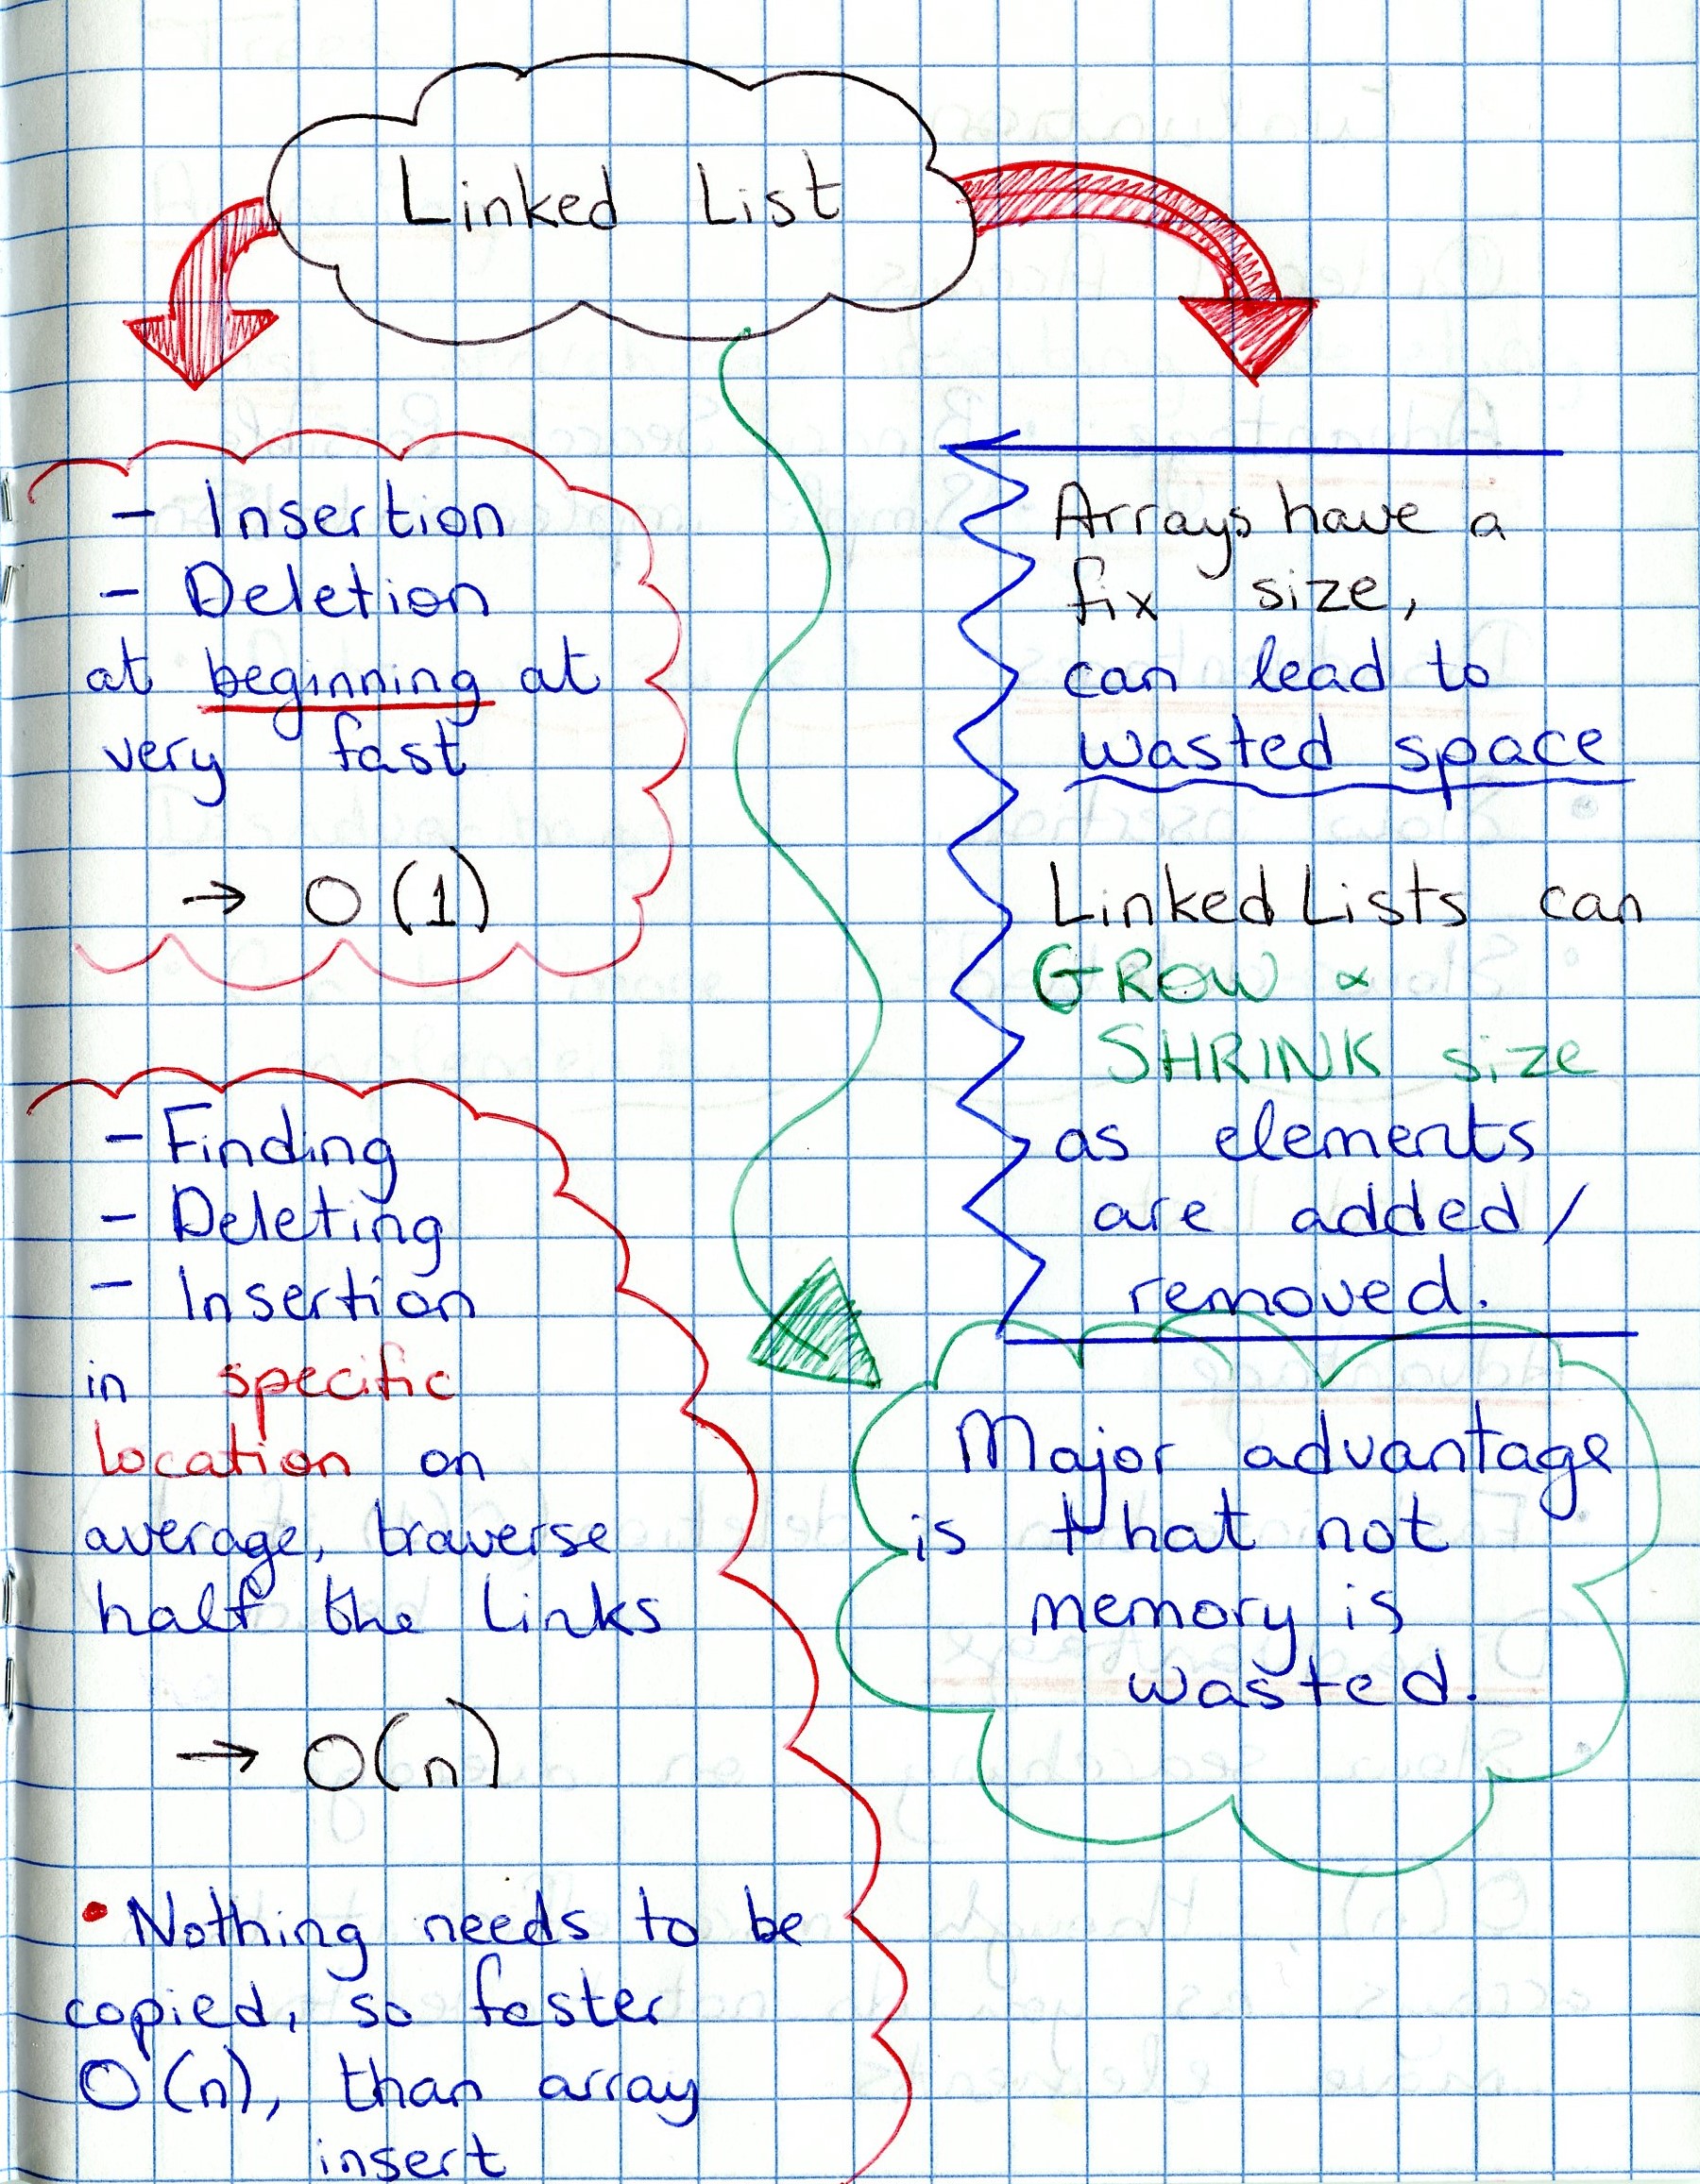 Linked List
- Insertion
- Deletion
at beginning at
very fast
→ O(1)
- Finding
- Deleting
- Insertion
in specific
location on
average, traverse
half the links
→ O(n)
• Nothing needs to be
copied, so faster
O(n), than array
insert
Arrays have a
fix size,
can lead to
wasted space
Linked Lists can
GROW &
SHRINK size
as elements
are added/
removed.
Major advantage
is that not
memory is
wasted.